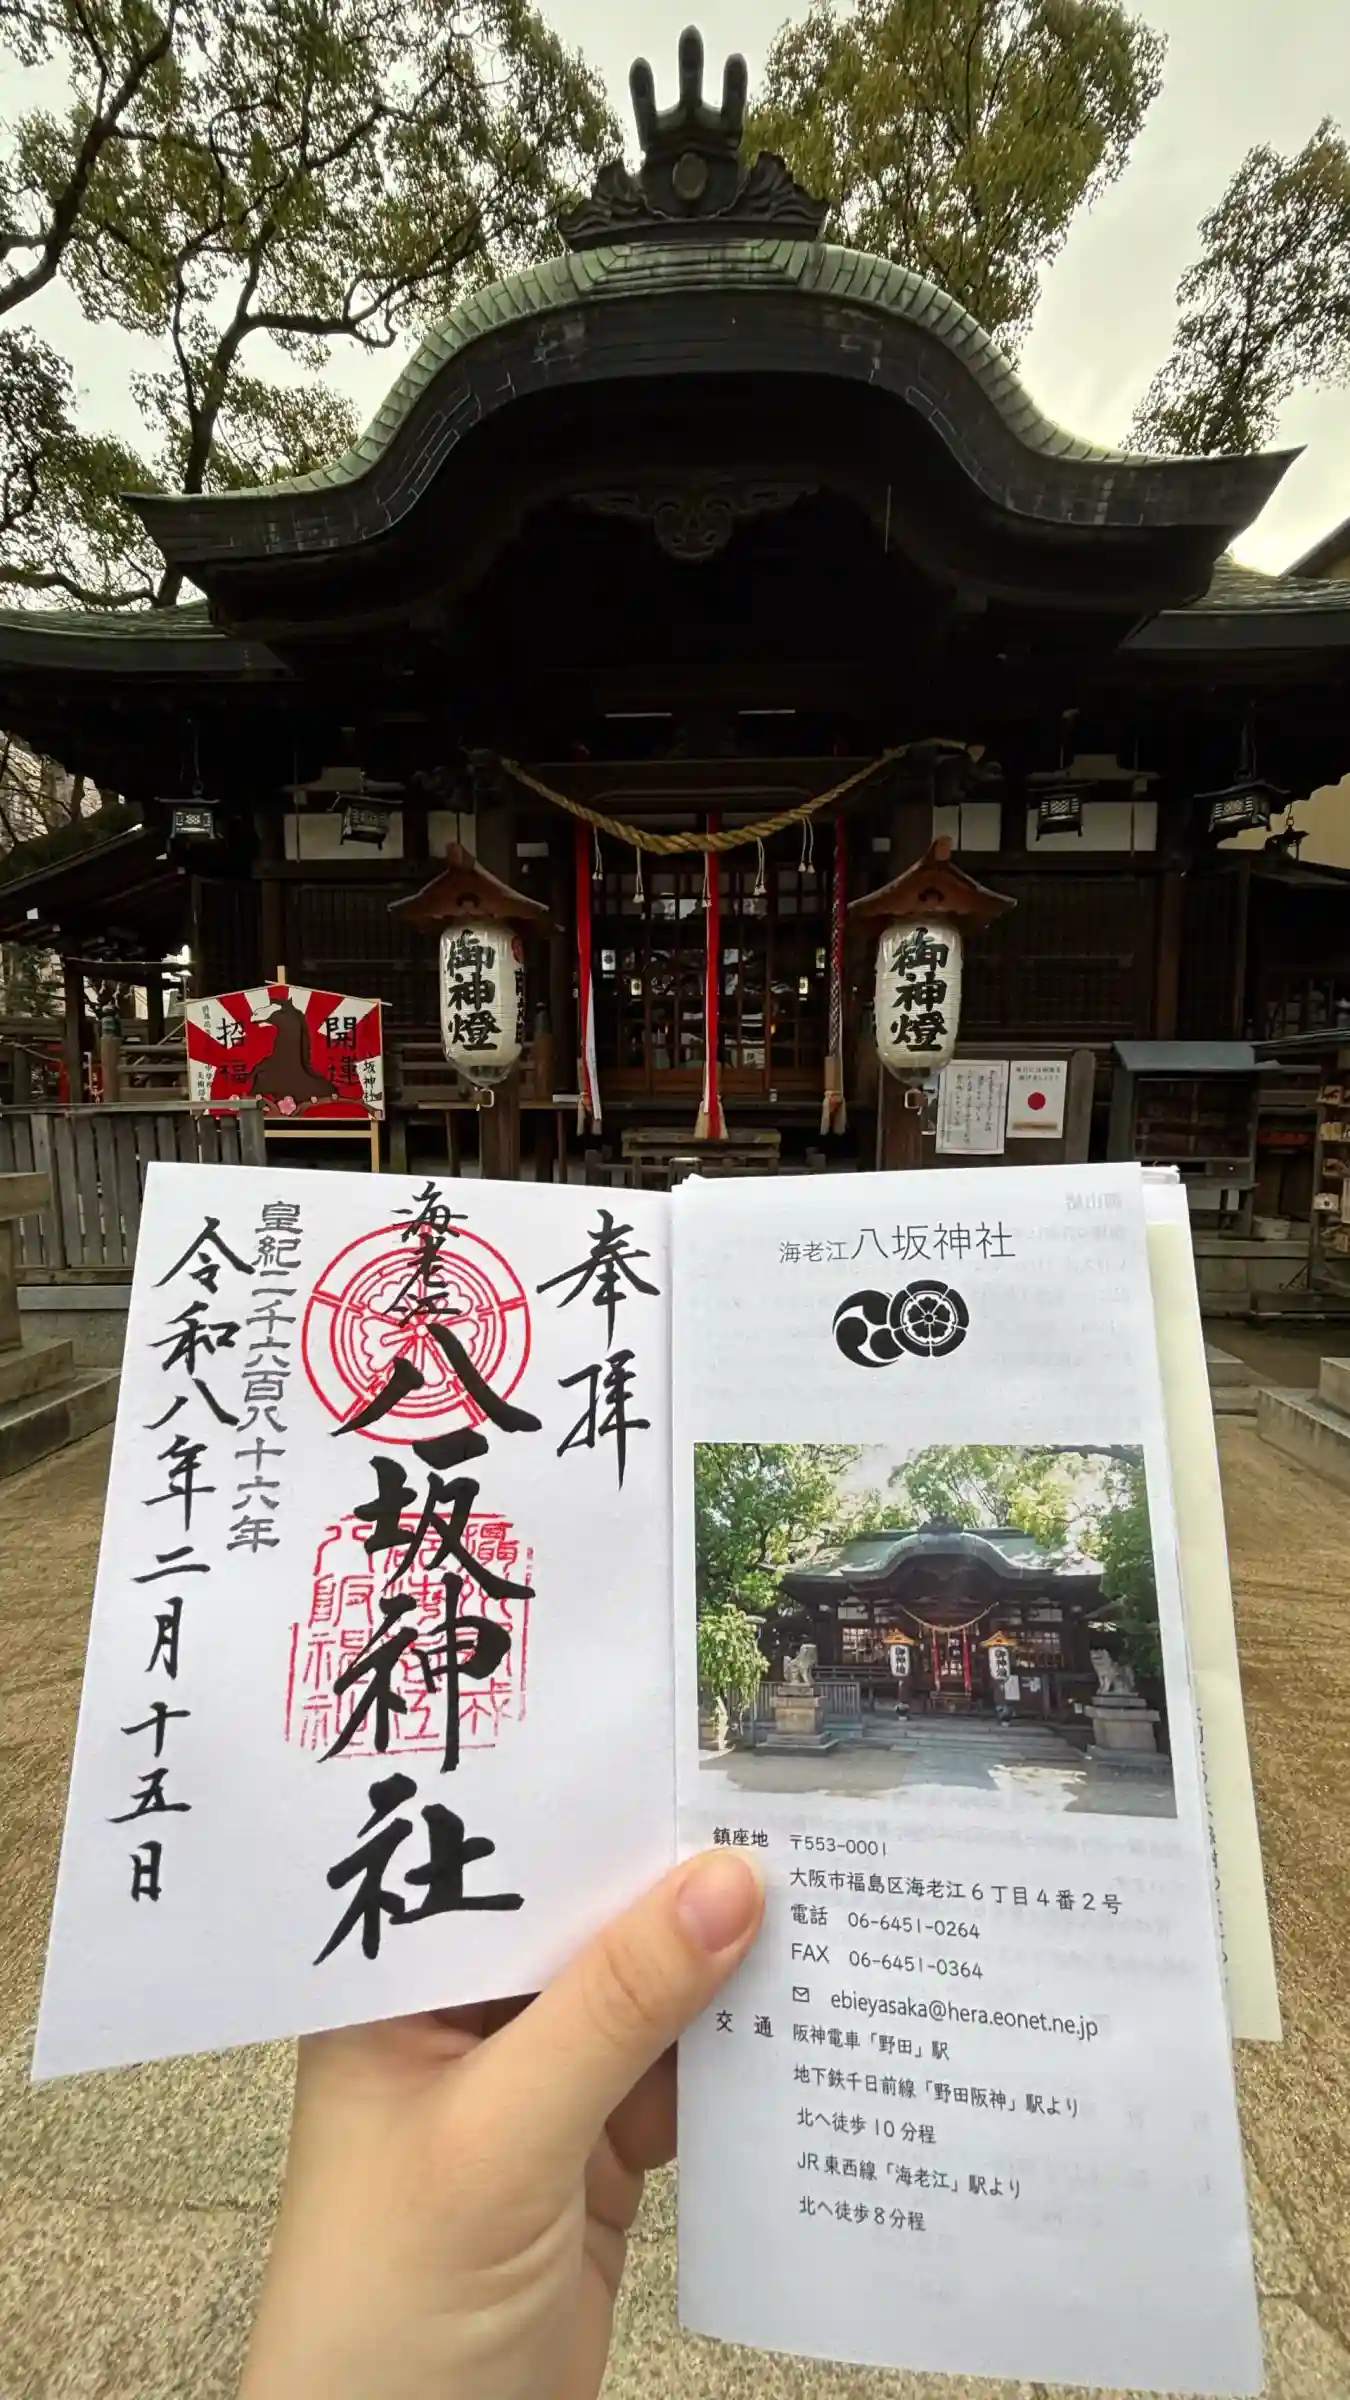 御神燈
御神燈
招福
開運
八坂神社
奉拝
海老江
八坂神社
皇紀二千六百八十六年
令和八年二月十五日
海老江八坂神社
鎮座地 〒553-0001
大阪市福島区海老江6丁目4番2号
電話 06-6451-0264
FAX 06-6451-0364
ebieyasaka@hera.eonet.ne.jp
交 通 阪神電車「野田」駅
地下鉄千日前線「野田阪神」駅より
北へ徒歩10分程
JR東西線「海老江」駅より
北へ徒歩8分程